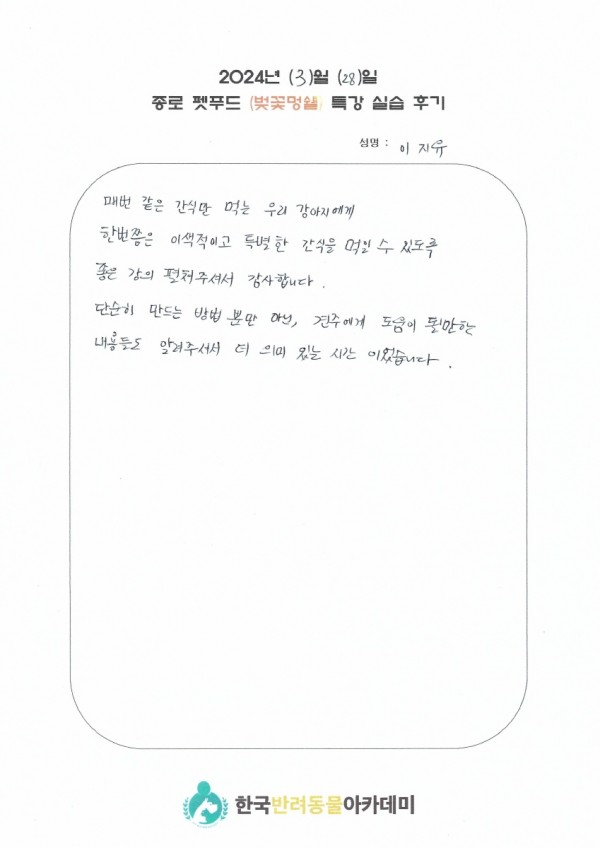 2024년 (3)월 (28)일
종로 펫푸드 (벚꽃멍쉘) 특강 실습 후기
성명 : 이지유
매번 같은 간식만 먹는 우리 강아지에게
한번쯤은 이색적이고 특별한 간식을 먹일 수 있도록
좋은 강의 펼쳐주셔서 감사합니다.
단순히 만드는 방법 뿐만 아닌, 견주에게 도움이 될만하는
내용들도 알려주셔서 더 의미 있는 시간 이었습니다.
한국반려동물아카데미